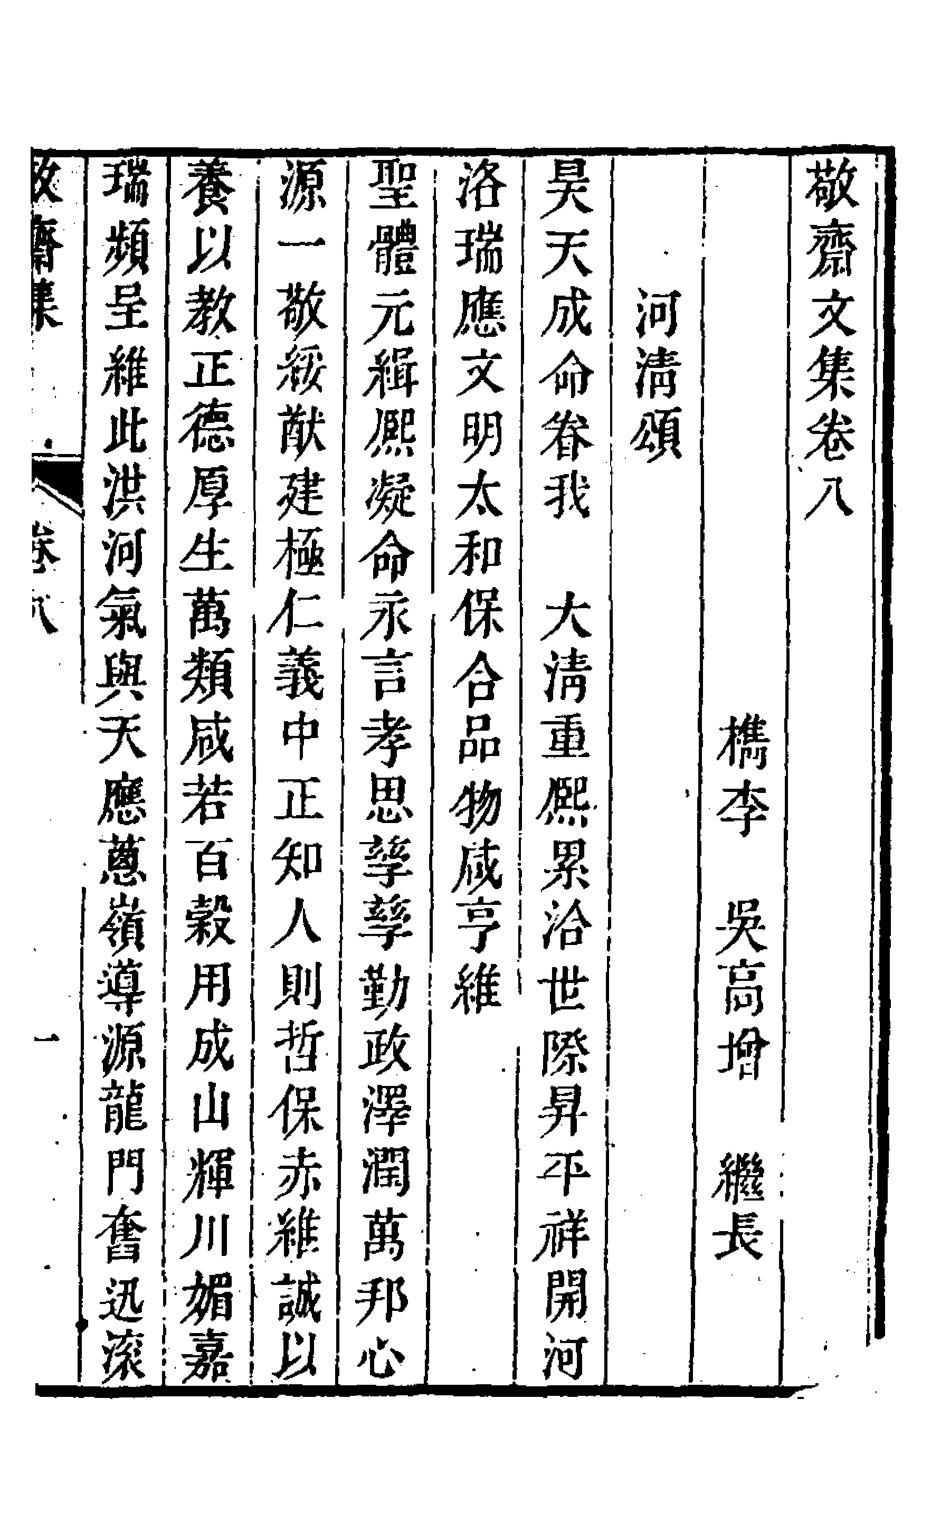 敬齋文集卷八
檇李　吳高增　繼長
河淸頌
昊天成命眷我　大淸重熙累洽世際昇平祥開河
洛瑞應文明太和保合品物咸亨維
聖體元緝熙凝命永言孝思孳孳勤政澤潤萬邦心
源一敬綏猷建極仁義中正知人則哲保赤維誠以
養以敎正德厚生萬類咸若百穀用成山輝川媚嘉
瑞頻呈維此洪河氣與天應蔥嶺導源龍門奮迅滾
敬齋集　卷八　一